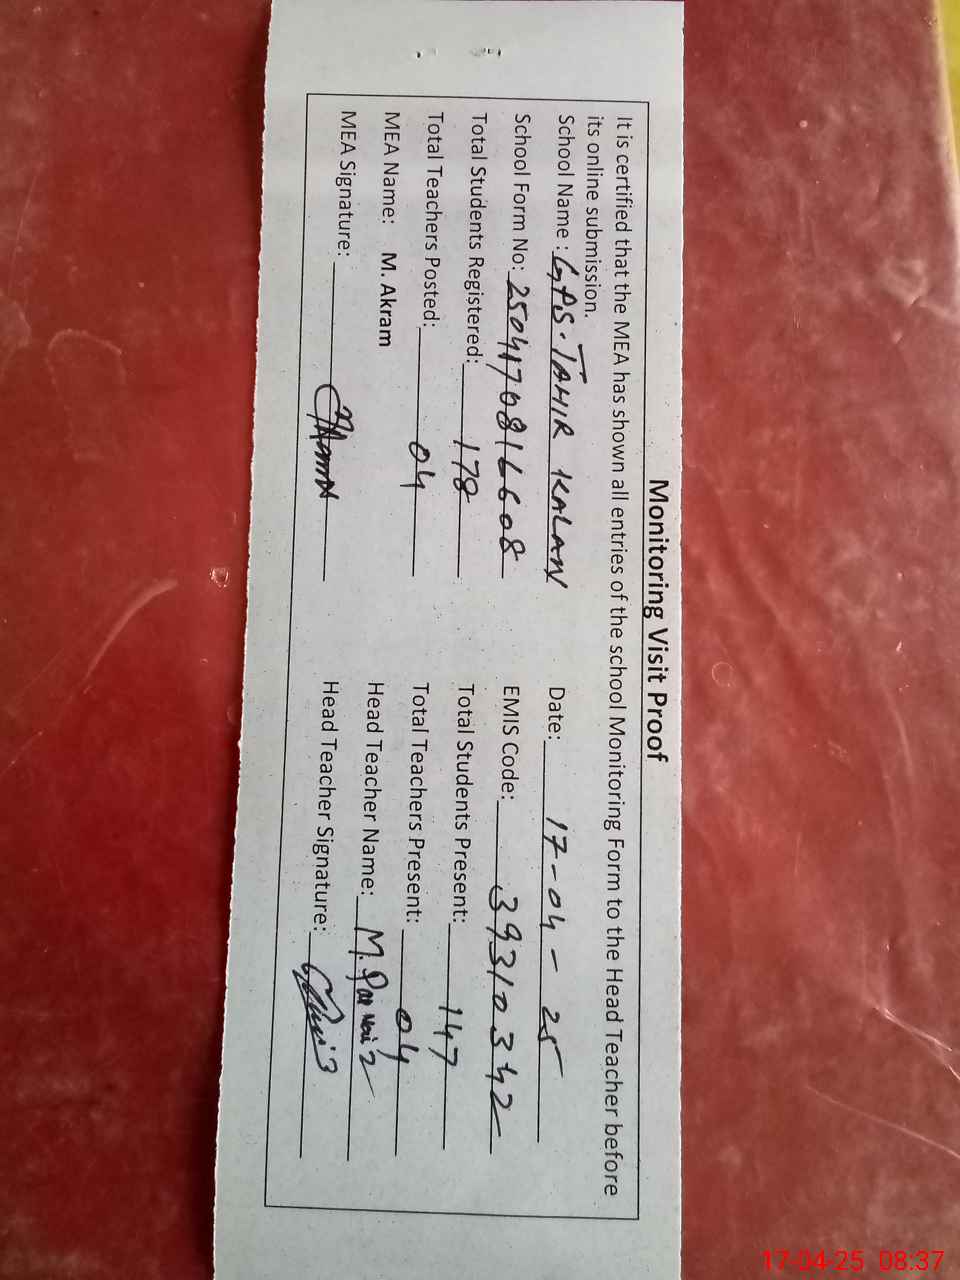 Monitoring Visit Proof
It is certified that the MEA has shown all entries of the school Monitoring Form to the Head Teacher before
its online submission.
School Name : GPS. TAHIR KALAN Date: 17-04-25
School Form No: 2504170816608 EMIS Code: 39310342
Total Students Registered: 178 Total Students Present: 147
Total Teachers Posted: 04 Total Teachers Present: 04
MEA Name: M. Akram Head Teacher Name: M.
MEA Signature: Head Teacher Signature:
17-04-25 08:37